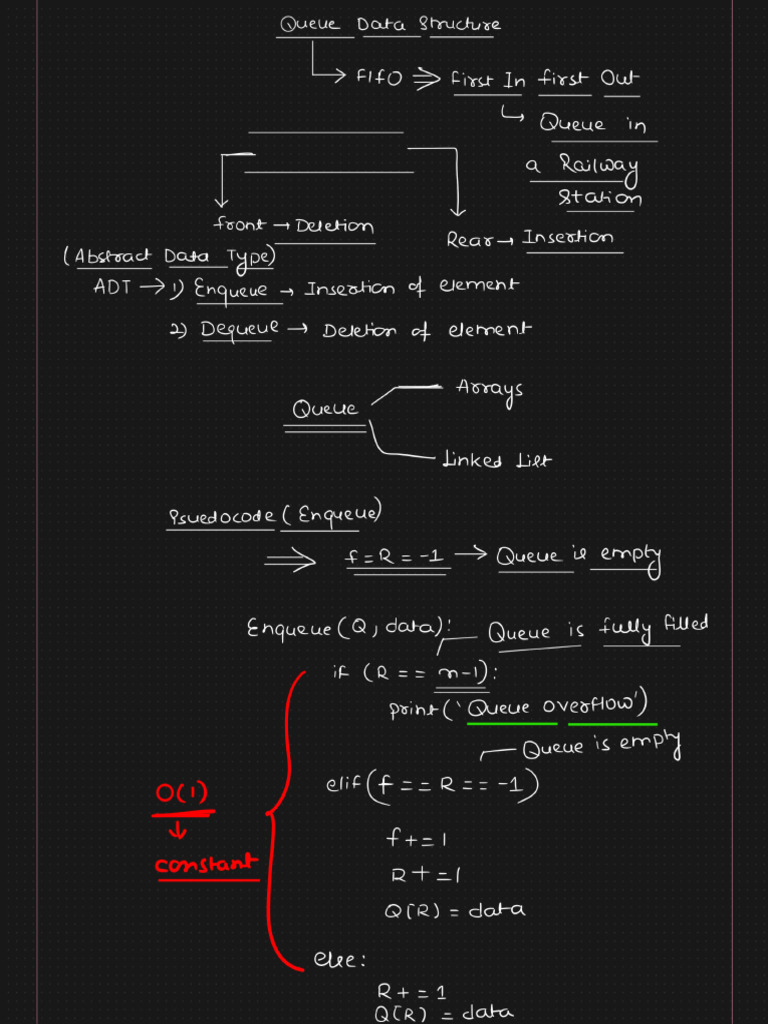 Queue Data Structure
→ FIFO ⇒ First In First Out
Queue in
a Railway
Station
front → Deletion
Rear → Insertion
(Abstract Data Type)
ADT → 1) Enqueue → Insertion of element
2) Dequeue → Deletion of element
Arrays
Queue
Linked List
Psuedocode (Enqueue)
⇒ f = R = -1 → Queue is empty
Enqueue(Q, data):
Queue is fully filled
if (R == n-1):
print('Queue overflow')
Queue is empty
elif(f == R == -1)
O(1)
↓
constant
f+=1
R+=1
Q[R] = data
else:
R+=1
Q[R] = data